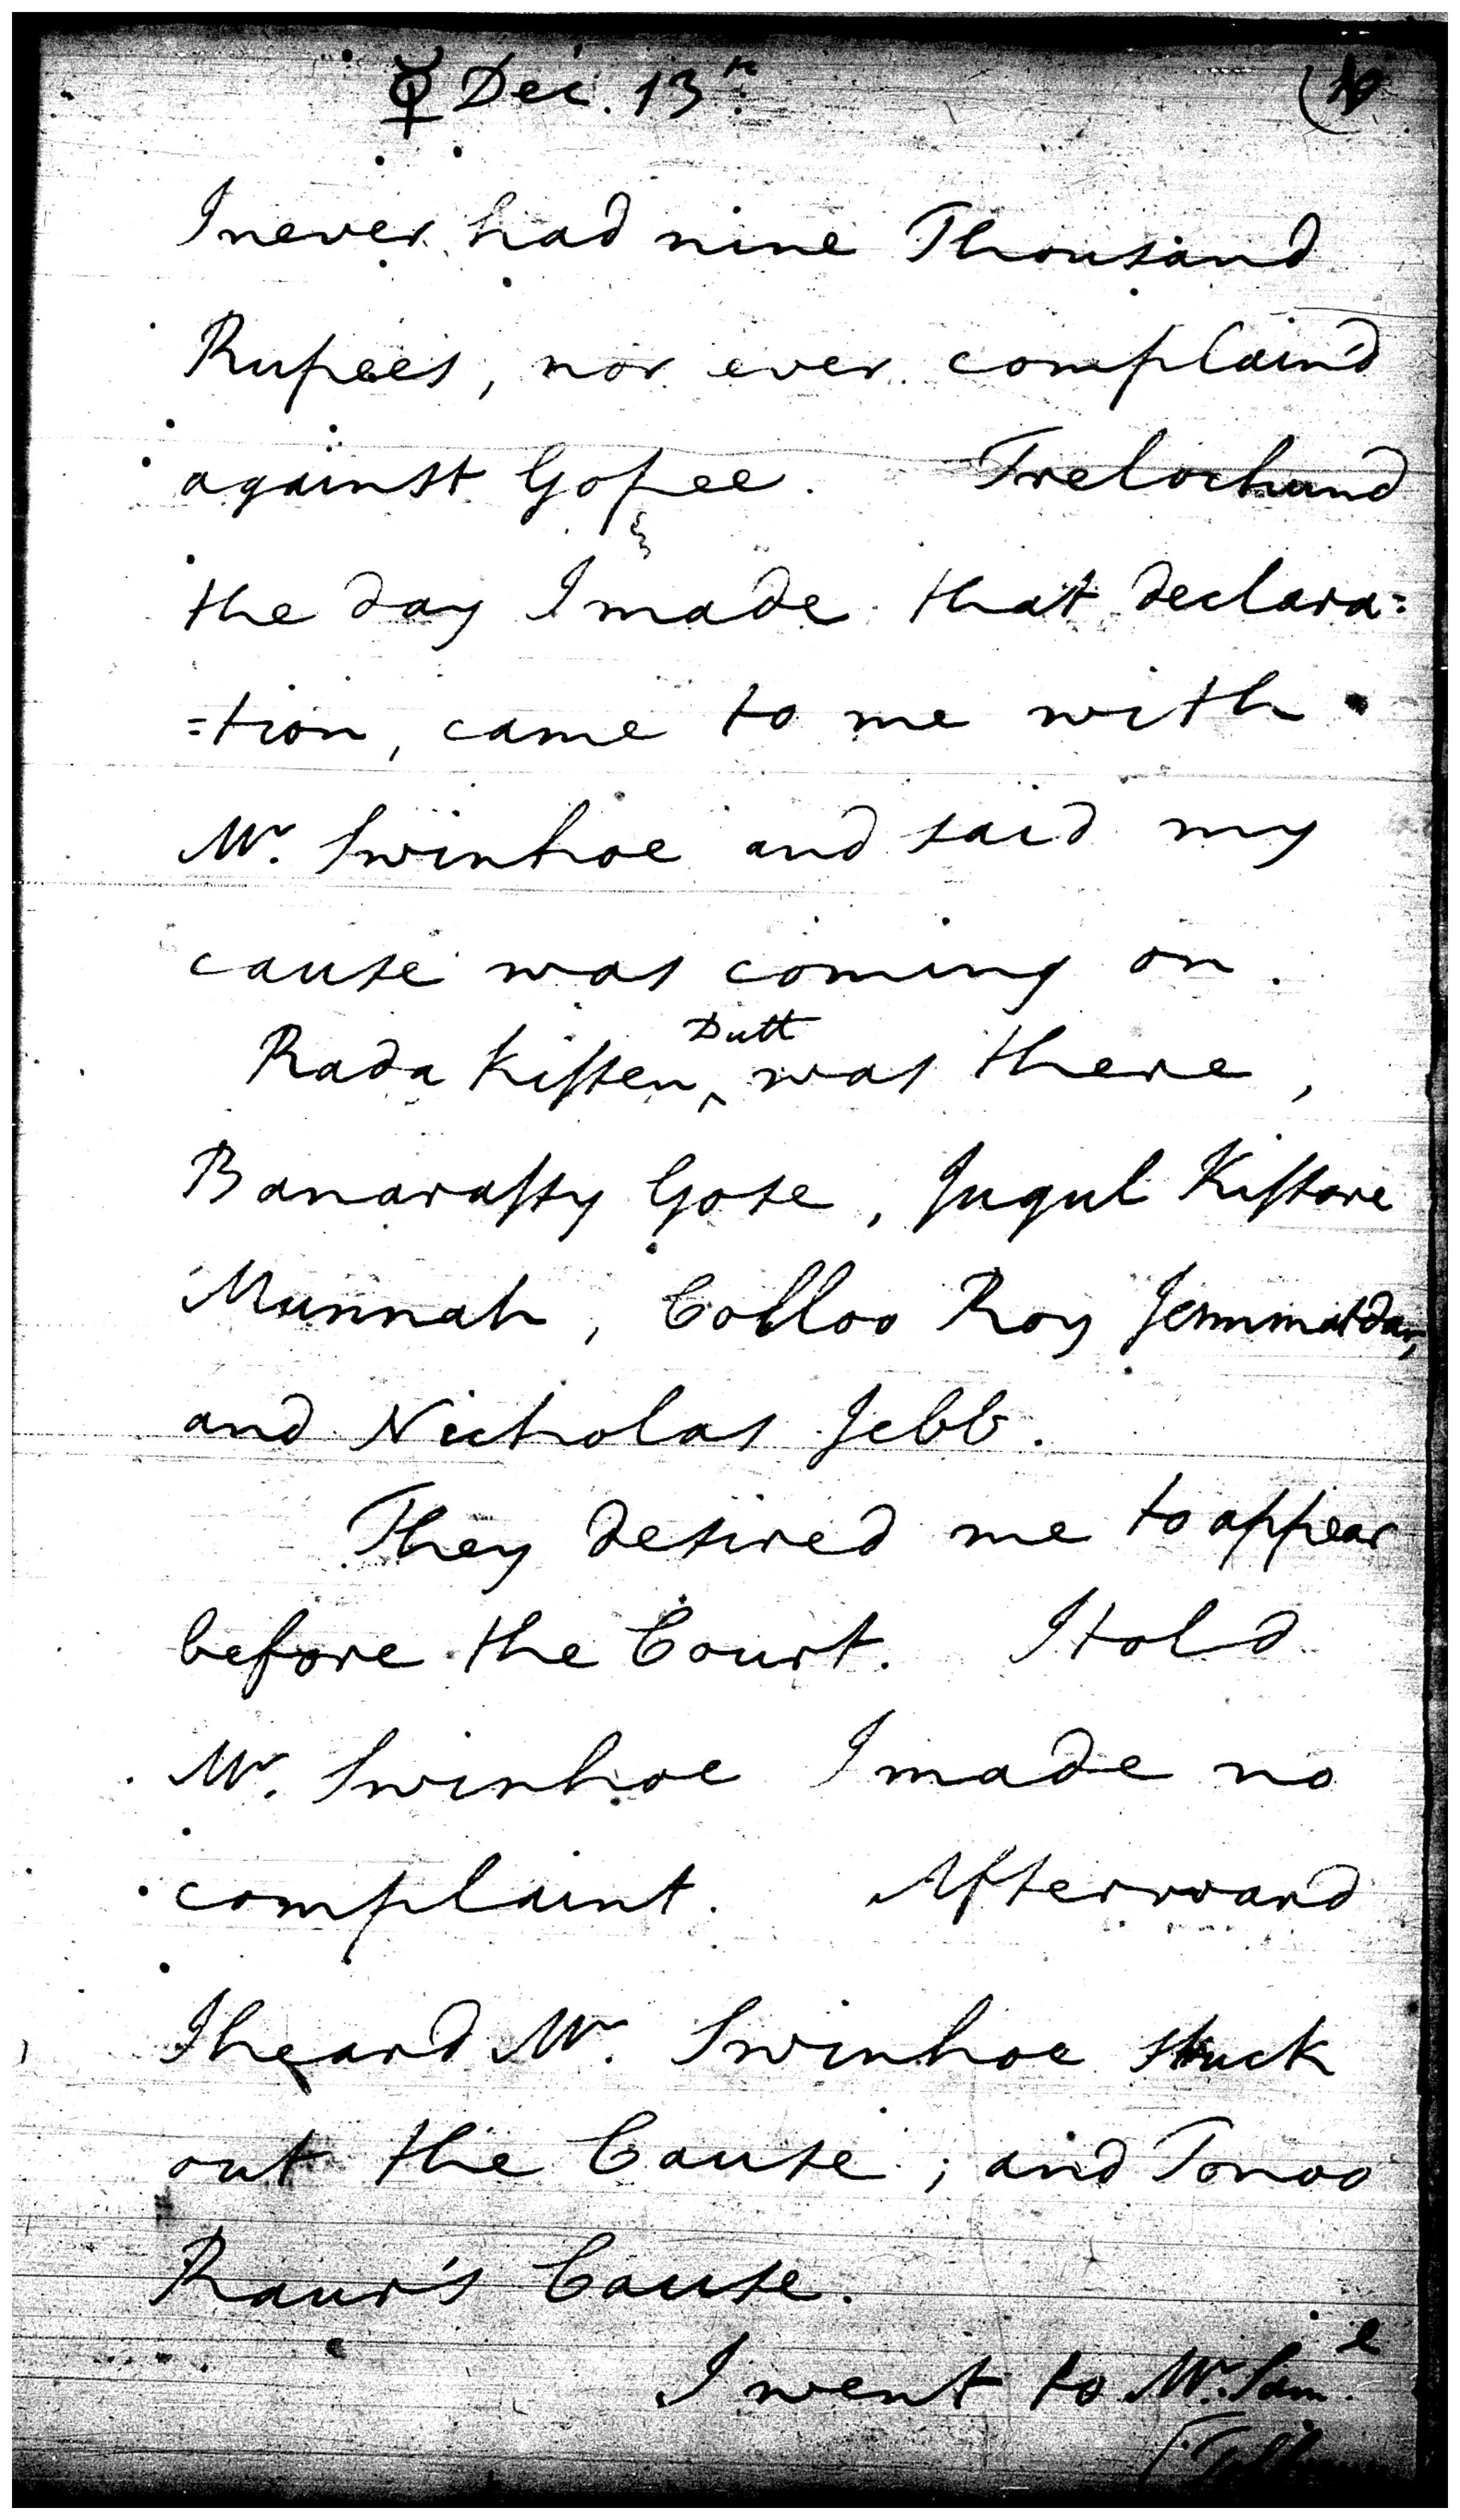 ☿ Dec. 13th.
I never had nine Thousand
Rupees, nor ever complain'd
against Gopee. Trelochund
the day I made that declara=
=tion, came to me with
Mr. Swinhoe and said my
cause was coming on.
Rada Kissen ^Dutt was there,
Banarassy Gose, Jugul Kissore
Munnah, Colloo Roy Jemmatdar,
and Nicholas Jebb.
They desired me to appear
before the Court. I told
Mr. Swinhoe I made no
complaint. Afterward
I heard Mr. Swinhoe struck
out the Cause; and Tonoo
Raur's Cause.
I went to Mr. Saml.